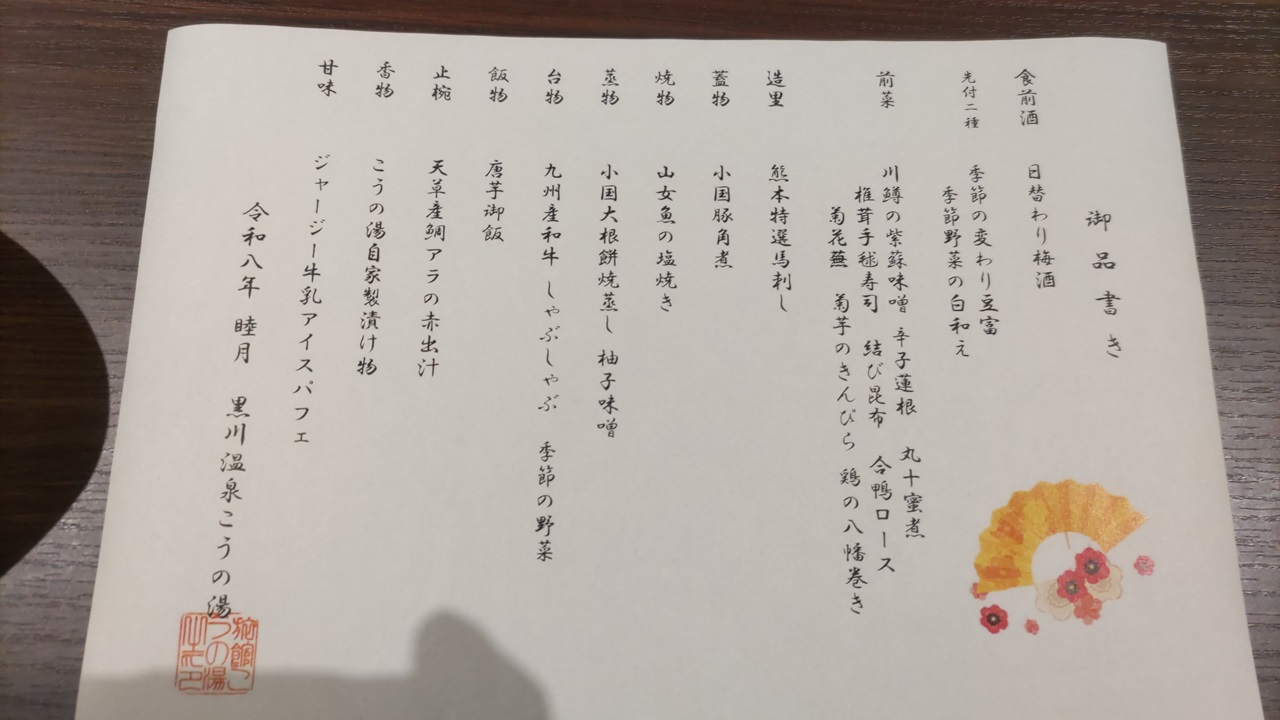 御品書き
食前酒 日替わり梅酒
先付二種 季節の変わり豆富
季節野菜の白和え
前菜 川鱒の紫蘇味噌 辛子蓮根 丸十蜜煮
椎茸手毬寿司 結び昆布 合鴨ロース
菊花蕪 菊芋のきんぴら 鶏の八幡巻き
造里 熊本特選馬刺し
蓋物 小国豚角煮
焼物 山女魚の塩焼き
蒸物 小国大根餅焼蒸し 柚子味噌
台物 九州産和牛 しゃぶしゃぶ 季節の野菜
飯物 唐芋御飯
止椀 天草産鯛アラの赤出汁
香物 こうの湯自家製漬け物
甘味 ジャージー牛乳アイスパフェ
令和八年 睦月 黒川温泉こうの湯